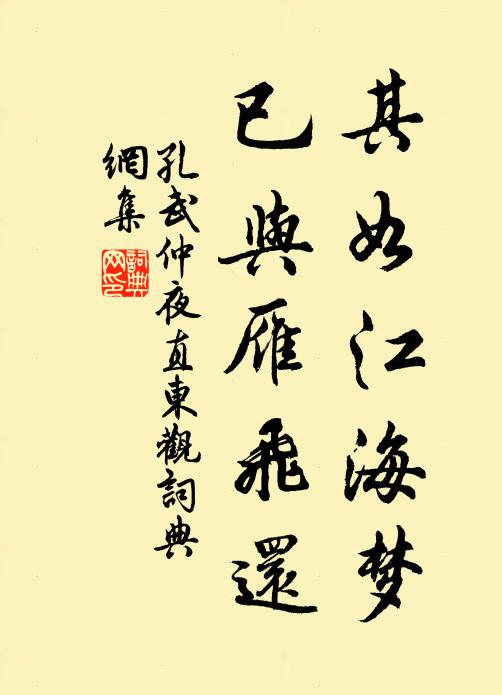 其如江海梦
已與雁飛還
孔武仲夜直東觀詞典
網集
詞典网印